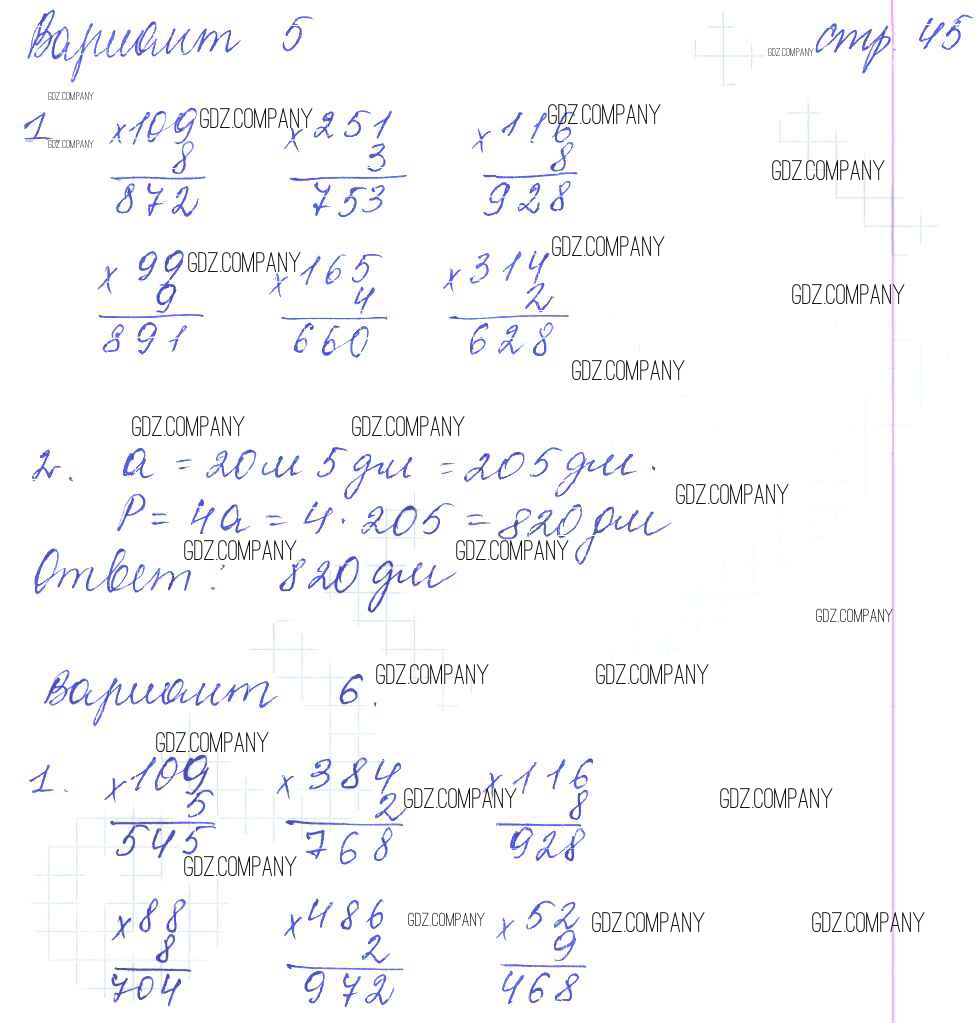 Вариант 5 GDZ.COMPANY стр. 45
GDZ.COMPANY
1. ×109 GDZ.COMPANY ×251 ×116 GDZ.COMPANY
GDZ.COMPANY 8 3 8 GDZ.COMPANY
872 753 928
×99 GDZ.COMPANY ×165 ×314 GDZ.COMPANY
9 4 2 GDZ.COMPANY
891 660 628
GDZ.COMPANY
GDZ.COMPANY GDZ.COMPANY
2. a = 20 м 5 дм = 205 дм.
GDZ.COMPANY
P = 4a = 4 · 205 = 820 дм
GDZ.COMPANY GDZ.COMPANY
Ответ: 820 дм
GDZ.COMPANY
Вариант 6. GDZ.COMPANY GDZ.COMPANY
GDZ.COMPANY
1. ×109 ×384 ×116
5 2 GDZ.COMPANY 8 GDZ.COMPANY
545 768 928
GDZ.COMPANY
×88 ×486 GDZ.COMPANY ×52 GDZ.COMPANY GDZ.COMPANY
8 2 9
704 972 468